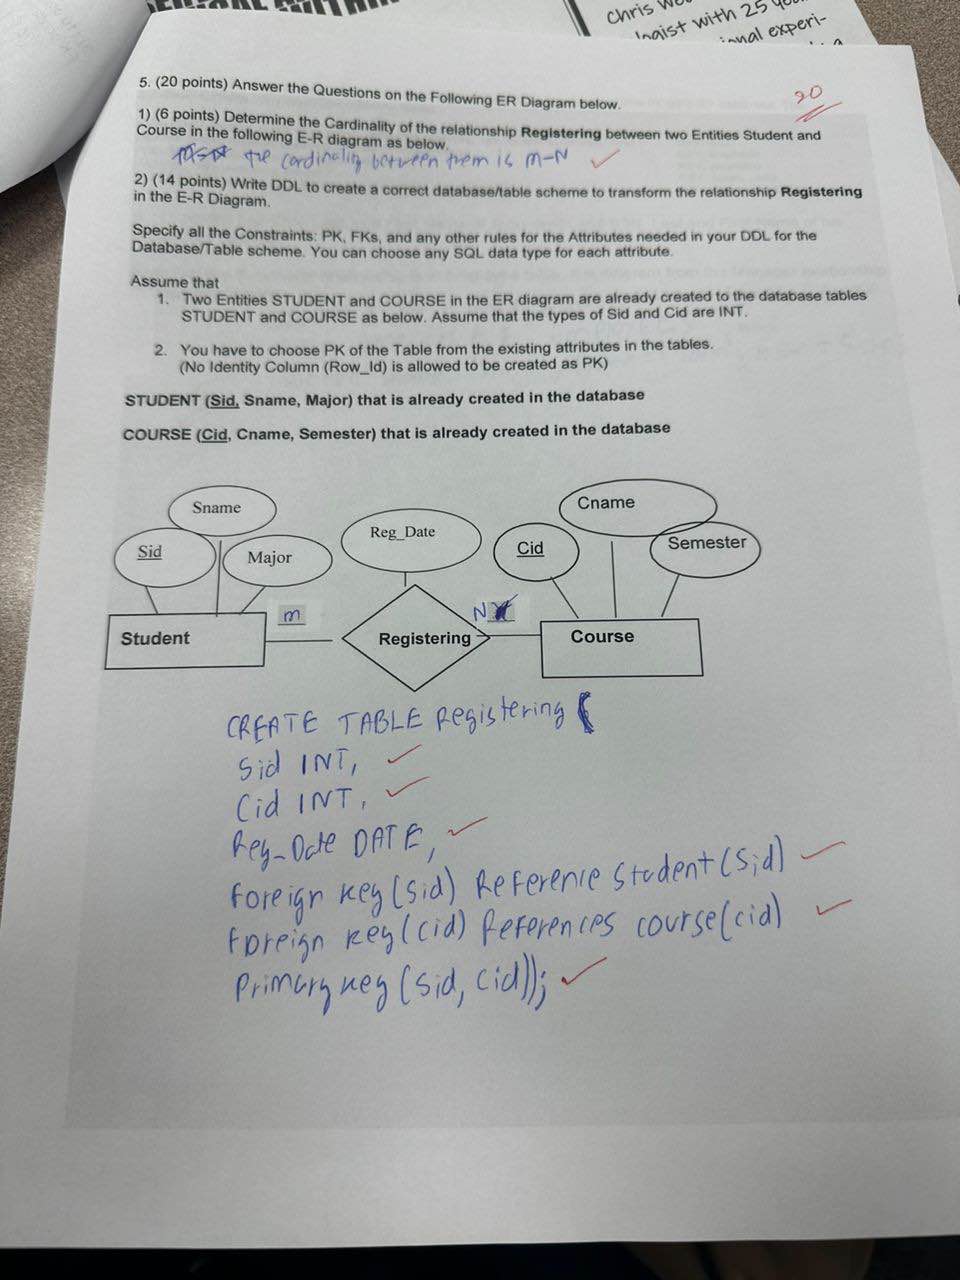 Chris
with 25
experi-
5. (20 points) Answer the Questions on the Following ER Diagram below.
20
1) (6 points) Determine the Cardinality of the relationship Registering between two Entities Student and
Course in the following E-R diagram as below.
the cardinality between them is M-N
2) (14 points) Write DDL to create a correct database/table scheme to transform the relationship Registering
in the E-R Diagram.
Specify all the Constraints: PK, FKs, and any other rules for the Attributes needed in your DDL for the
Database/Table scheme. You can choose any SQL data type for each attribute.
Assume that
1. Two Entities STUDENT and COURSE in the ER diagram are already created to the database tables
STUDENT and COURSE as below. Assume that the types of Sid and Cid are INT.
2. You have to choose PK of the Table from the existing attributes in the tables.
(No Identity Column (Row_Id) is allowed to be created as PK)
STUDENT (Sid, Sname, Major) that is already created in the database
COURSE (Cid, Cname, Semester) that is already created in the database
Sname
Cname
Reg_Date
Sid
Major
Cid
Semester
m
N
Student
Registering
Course
CREATE TABLE Registering (
Sid INT,
Cid INT,
Reg_Date DATE,
Foreign key(Sid) Reference Student(Sid)
Foreign key(cid) References course(cid)
Primary key (Sid, Cid));